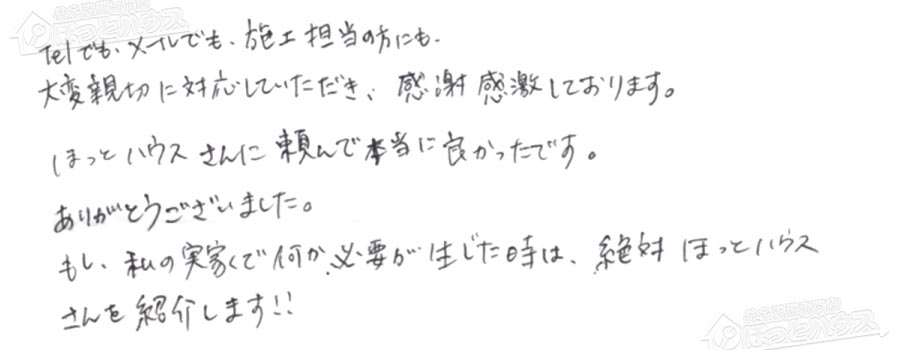 Telでも、メールでも、施工担当の方にも、
大変親切に対応していただき、感謝感激しております。
ほっとハウスさんに頼んで本当に良かったです。
ありがとうございました。
もし、私の実家で何か必要が生じた時は、絶対ほっとハウス
さんを紹介します!!
ほっとハウス
ほっとハウス